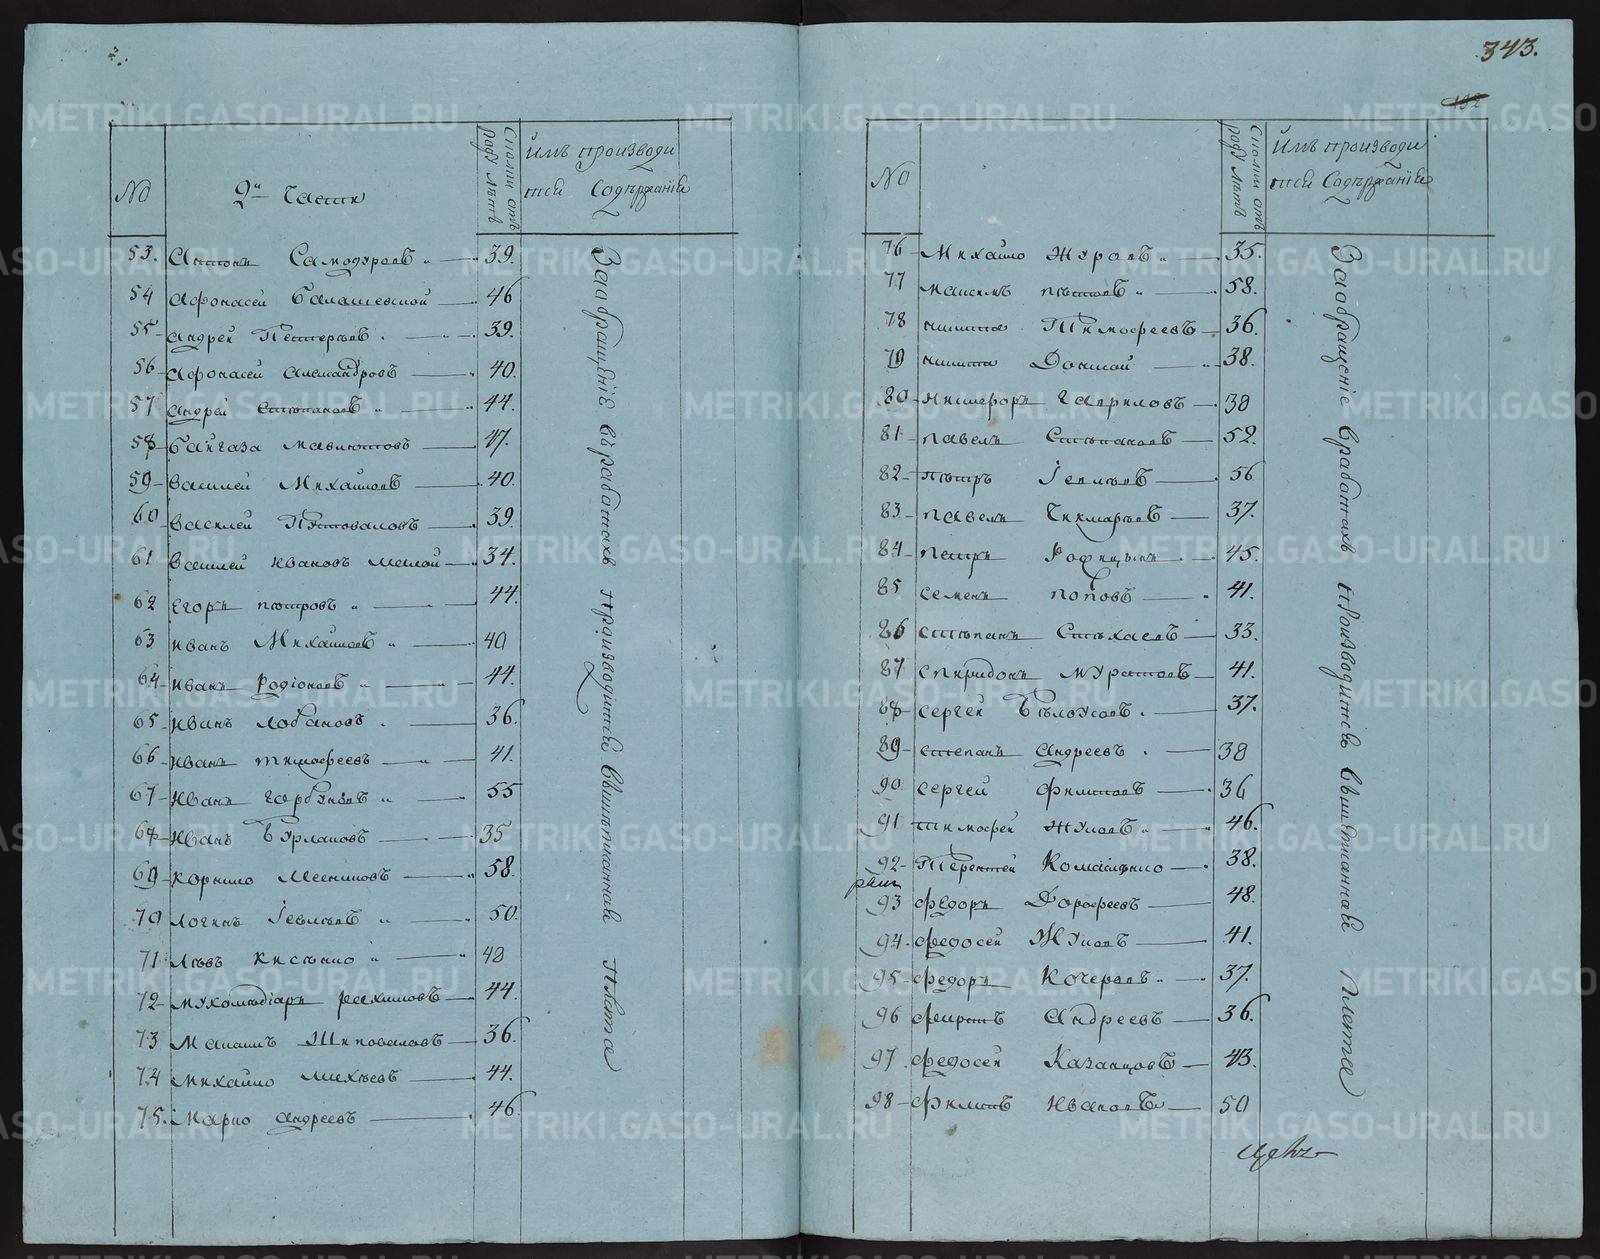 343.
132
№
2й Части
Сколки отъ роду лѣтъ
Имъ производи
тся Содержанiе
53. Антонъ Самодуровъ 39.
54 Афонасей Балашевской 46
55 Андрей Петтеръевъ 39.
56 Афонасей Александровъ 40.
57 Андрей Степановъ 44.
58 Байгаза Мавлютовъ 47.
59 Василей Михайловъ 40.
60 Василей Пустоваловъ 39.
61 Василей Ивановъ Меншой 34.
62 Егоръ Пѣтровъ 44.
63 Иванъ Михайловъ 40
64 Иванъ Родiоновъ 44.
65 Иванъ Лобановъ 36.
66 Иванъ Тимофеевъ 41.
67 Иванъ Горбуновъ 55
68 Иванъ Бурлаковъ 35
69 Корнило 58.
70 Логинъ Iевлѣвъ 50.
71 Лѣвъ 48
72 рахимовъ 44.
73 Шиповаловъ 36.
74 Михайло Михѣевъ 44.
75. Марко Андреевъ 46.
Заобращенiе въработахъ производится вышеписанная плата
№
Сколки отъ роду лѣтъ
Имъ производи
тся Содержанiе
76 Михайло Журовъ 35.
77 Максимъ пѣтровъ 58.
78 никита Тимофеевъ 36.
79 никита Донской 38.
80 Никифоръ Гавриловъ 38
81 Павелъ Степановъ 52.
82 Пѣтръ Iевлѣвъ 56
83 Павелъ Чикмарѣвъ 37.
84 Петръ 45.
85 Семенъ Поповъ 41.
86 Степанъ 33.
87 Спиридонъ Муратовъ 41.
88 Сергей Бѣлоусовъ 37.
89 Степанъ Андреевъ 38
90 Сергей Филиповъ 36
91 Тимофей Жуковъ 46.
92 Терентей 38.
93 Федоръ Дорофеевъ 48.
94 Федосей Жуковъ 41.
95 Федоръ Кочеровъ 37.
96 Андреевъ 36.
97 Федосей Казанцовъ 43.
98 Филипъ Ивановъ 50
Заобращенiе вработахъ производится вышеписанная Плата